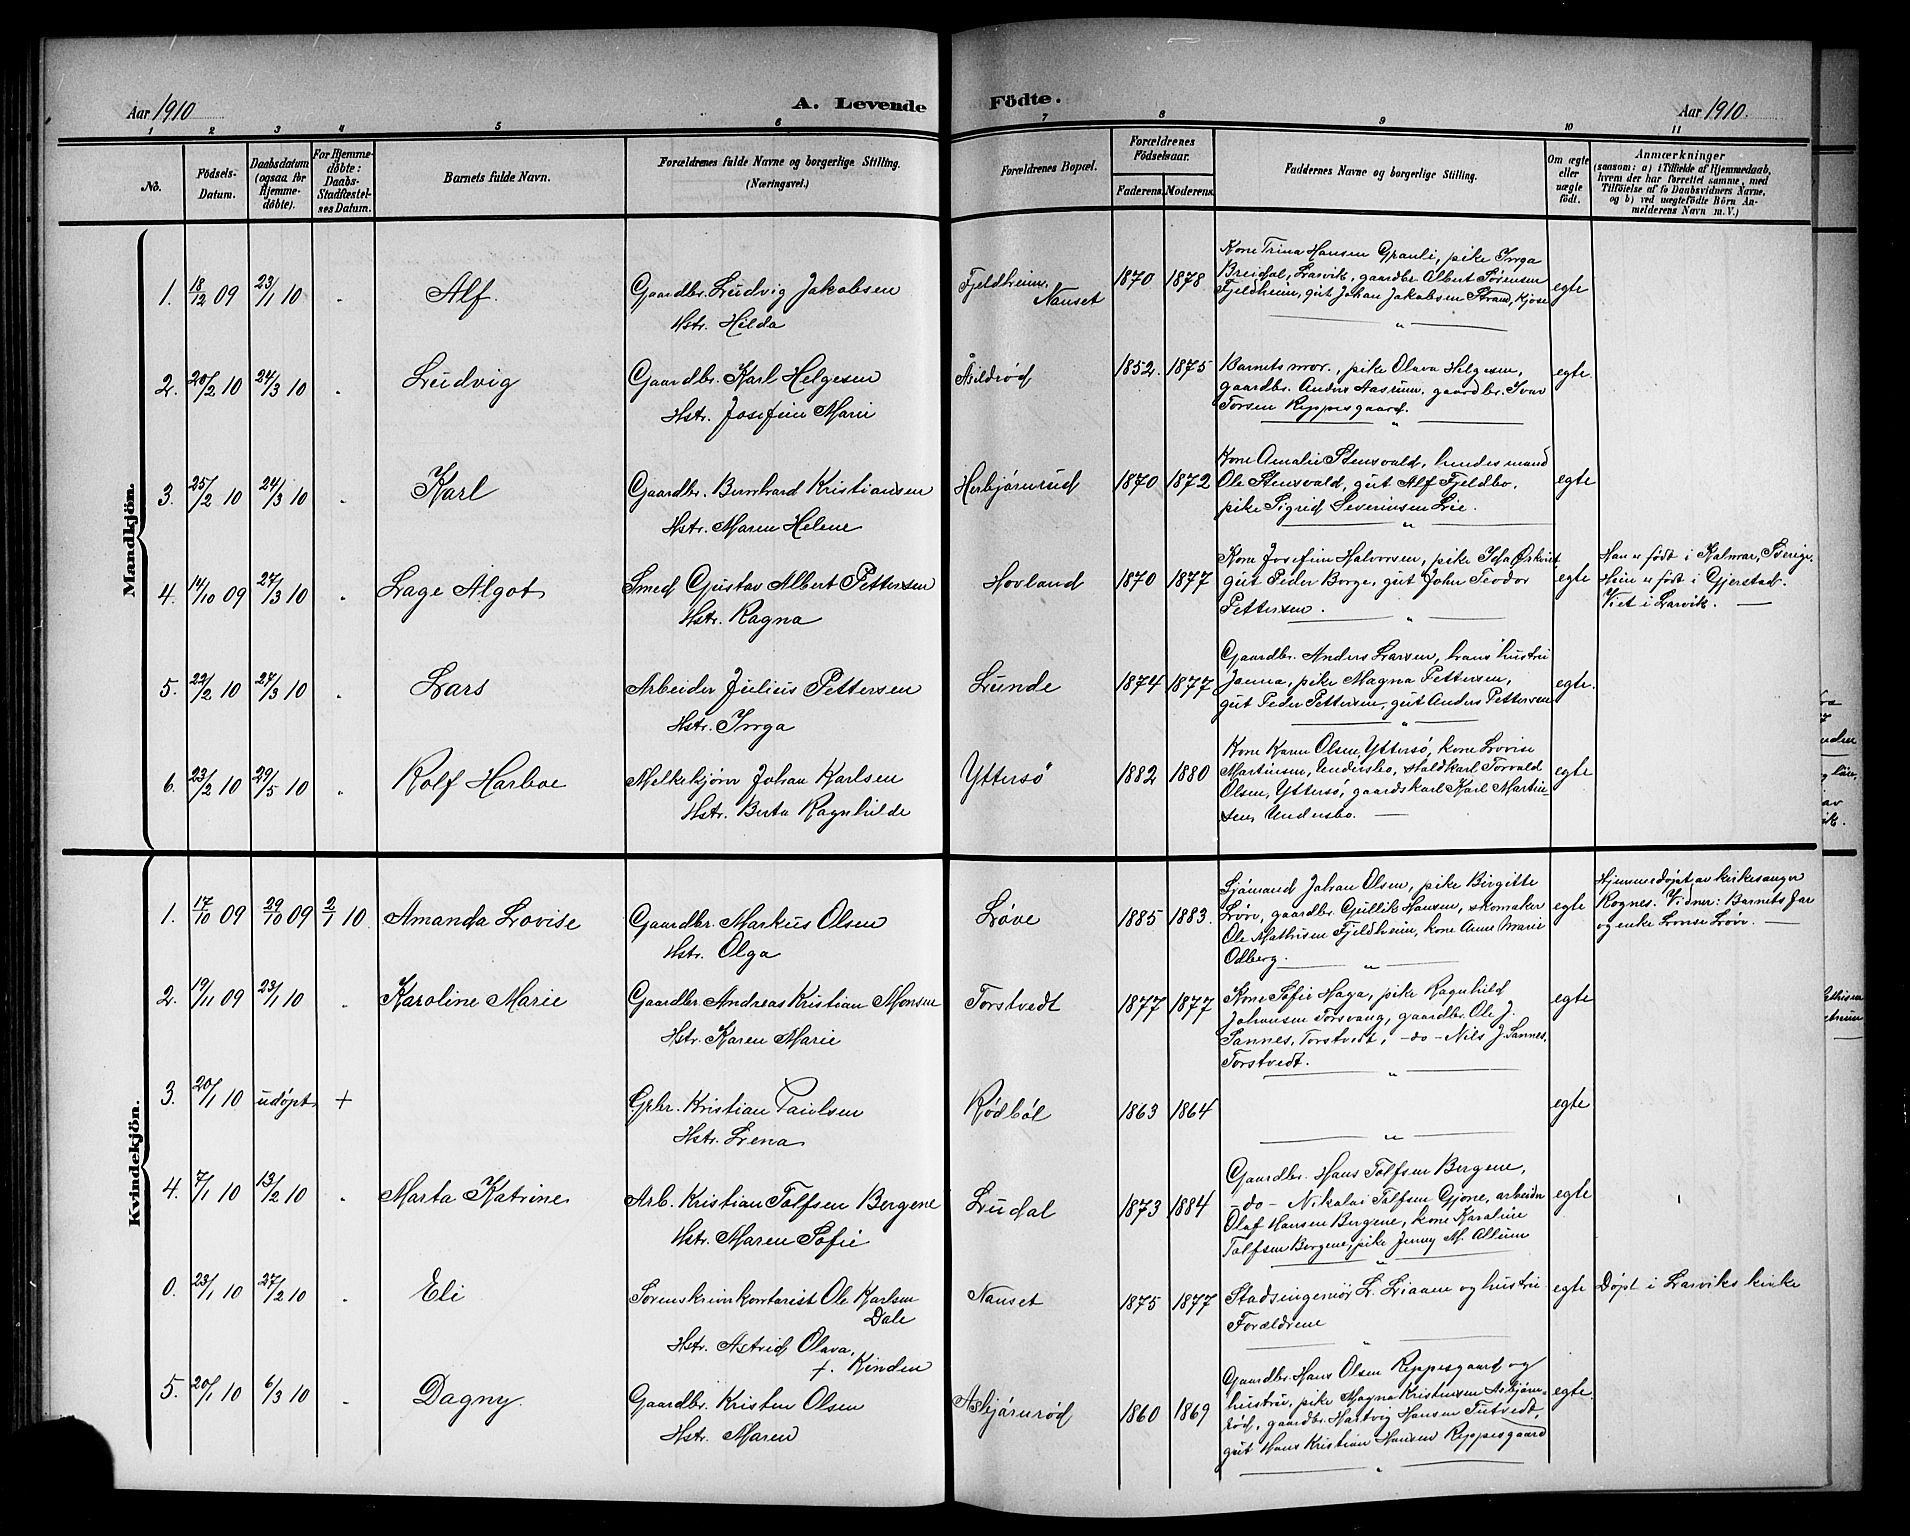 Aar 1910
A. Levende
Födte.
Aar 1910.
1 2 3 4 5 6 7 8 9 10 11
No.
Födsels-
Datum.
Daabsdatum
(ogsaa for
Hjemme-
döbte).
For Hjemme-
döbte:
Daabs-
Stadfæstel-
ses Datum.
Barnets fulde Navn.
Forældrenes fulde Navne og borgerlige Stilling.
(Næringsvei.)
Forældrenes Bopæl.
Forældrenes
Födselsaar.
Faderens. Moderens.
Faddernes Navne og borgerlige Stilling.
Om ægte
eller
uægte
födt.
Anmærkninger
(saasom: a) i Tilfælde af Hjemmedaab,
hvem der har forrettet samme, med
Tilföielse af to Daabsvidners Navne,
og b) ved uægtefödte Börn An-
melderens Navn m. V.)
Mandkjön.
1. 18/12 09 23/1 10 " Alf.
Gaardbr. Ludvig Jakobsen
Hstr. Hilda
Fjeldheim,
Nanset
1870 1878
Kone Trina Hansen Granli, pike Inga
Breidal, Larvik, gaardbr. Albert Sørensen
Fjeldheim, gut Johan Jakobsen Strand, Kjose
egte
2. 20/2 10 24/3 10 " Ludvig
Gaardbr. Karl Helgesen
Hstr. Josefine Marie
Åsildrød
1852. 1875
Barnets mor, pike Olava Helgesen,
gaardbr. Anders Aasrum, gaardbr. Ivar
Torsen Reppesgaard.
egte.
3. 25/2 10 24/3 10 " Karl
Gaardbr. Bernhard Kristiansen
Hstr. Maren Helene
Herbjørnrud
1870 1872
Kone Amalie Stensvald, hendes mand
Ole Stensvald, gut Alf Fjeldbo,
pike Sigrid Severinsen Lie.
egte
4. 14/10 09 27/3 10 " Lage Algot
Smed Gustav Albert Pettersen
Hstr. Ragna
Hovland
1870 1877
Kone Josefine Halvorsen, pike Ida Østkvist
gut Peder Borge, gut John Teodor
Pettersen.
egte
Han er født i Kalmar, Sverige.
Hun er født i Gjerstad.
Viet i Larvik.
5. 22/2 10 27/3 10 " Lars
Arbeider Julius Pettersen
Hstr. Inga
Lunde
1874 1877
Gaardbr. Anders Larsen, hans hustru
Janna, pike Magna Pettersen,
gut Peder Pettersen, gut Anders Pettersen
egte.
6. 23/2 10 29/5 10 " Rolf Harboe
Melkekjører Johan Karlsen
Hstr. Berta Ragnhilde
Yttersö
1882 1880
Kone Karen Olsen, Yttersö, kone Lovise
Martinsen, Undersbo, staldkarl Torvald
Olsen, Yttersö, gaardskarl Karl Martin-
sen, Undersbo.
egte
Kvindekjön.
1. 17/10 09 29/10 09 2/1 10 Amanda Lovise
Gaardbr. Markus Olsen
Hstr. Olga
Løve
1885 1883.
Sjømand Johan Olsen, pike Birgitte
Løve, gaardbr. Gullik Hansen, skomaker
Ole Mathisen Fjeldheim, kone Anne Marie
Odberg.
egte
Hjemmedøpt av kirkesanger
Rognes. Vidner: Barnets far
og enke Lovise Løve.
2. 19/11 09 23/1 10 " Karoline Marie
Gaardbr Andreas Kristian Monsen
Hstr. Karen Marie
Torstvedt
1877 1877
Kone Sofie Haga, pike Ragnhild
Johansen Torsvang, gaardbr. Ole J.
Sannes, Torstvedt, -do- Nils J. Sannes,
Torstvedt.
egte
3. 20/1 10 udøpt +
Grbr. Kristian Paulsen
Hstr. Lena
Rødbøl
1863 1864
egte
4. 7/1 10 13/2 10 " Marta Katrine
Arb. Kristian Tolfsen Bergene
Hstr. Maren Sofie
Ludal
1873 1884
Gaardbr. Hans Tolfsen Bergene,
-do- Nikolai Tolfsen Gjone, arbeider
Olaf Hansen Bergene, kone Karoline
Tolfsen Bergene, pike Jenny M. Allum
egte
0. 23/1 10 27/2 10 " Eli
Sorenskriverkontorist Ole Karlsen
Dale
Hstr. Astrid Olava,
f. Kinden
Nanset
1875 1877
Stadsingeniør L. Liaaen og hustru
Forældrene
egte
Døpt i Larviks kirke
5. 20/1 10 6/3 10 " Dagny
Gaardbr. Kristen Olsen
Hstr. Maren
Asbjørnrød
1860 1869
Gaardbr. Hans Olsen Reppesgaard og
hustru, pike Magna Kristensen Asbjørn-
rød, gaardbr. Hartvig Hansen Tutvedt,
gut Hans Kristian Hansen Reppesgaard
egte.